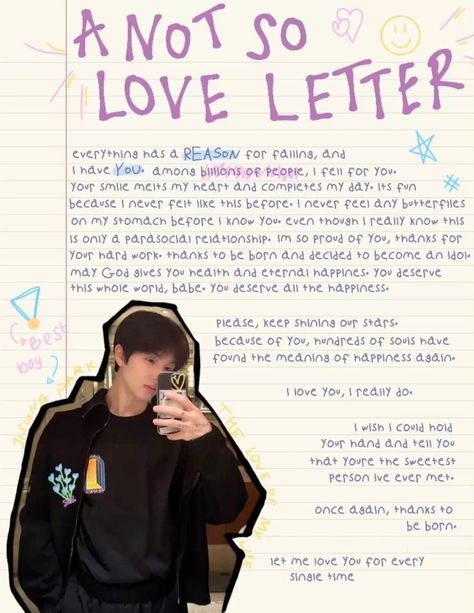 A NOT SO
LOVE LETTER
everything has a REASON for falling, and
I have YOU. among billions of people, I fell for you.
Your smile melts my heart and completes my day. Its fun
because I never felt like this before. I never feel any butterflies
on my stomach before I know you. even though I really know this
is only a parasocial relationship. im so proud of you, thanks for
your hard work. thanks to be born and decided to become an idol.
may God gives you health and eternal happines. you deserve
this whole world, babe. you deserve all the happiness.
please, keep shining our stars.
because of you, hundreds of souls have
found the meaning of happiness again.
I love you, I really do.
I wish I could hold
your hand and tell you
that youre the sweetest
person ive ever met.
once again, thanks to
be born.
let me love you for every
single time
Best
boy
JISUNG PARK
THE LOVE OF MY LIFE